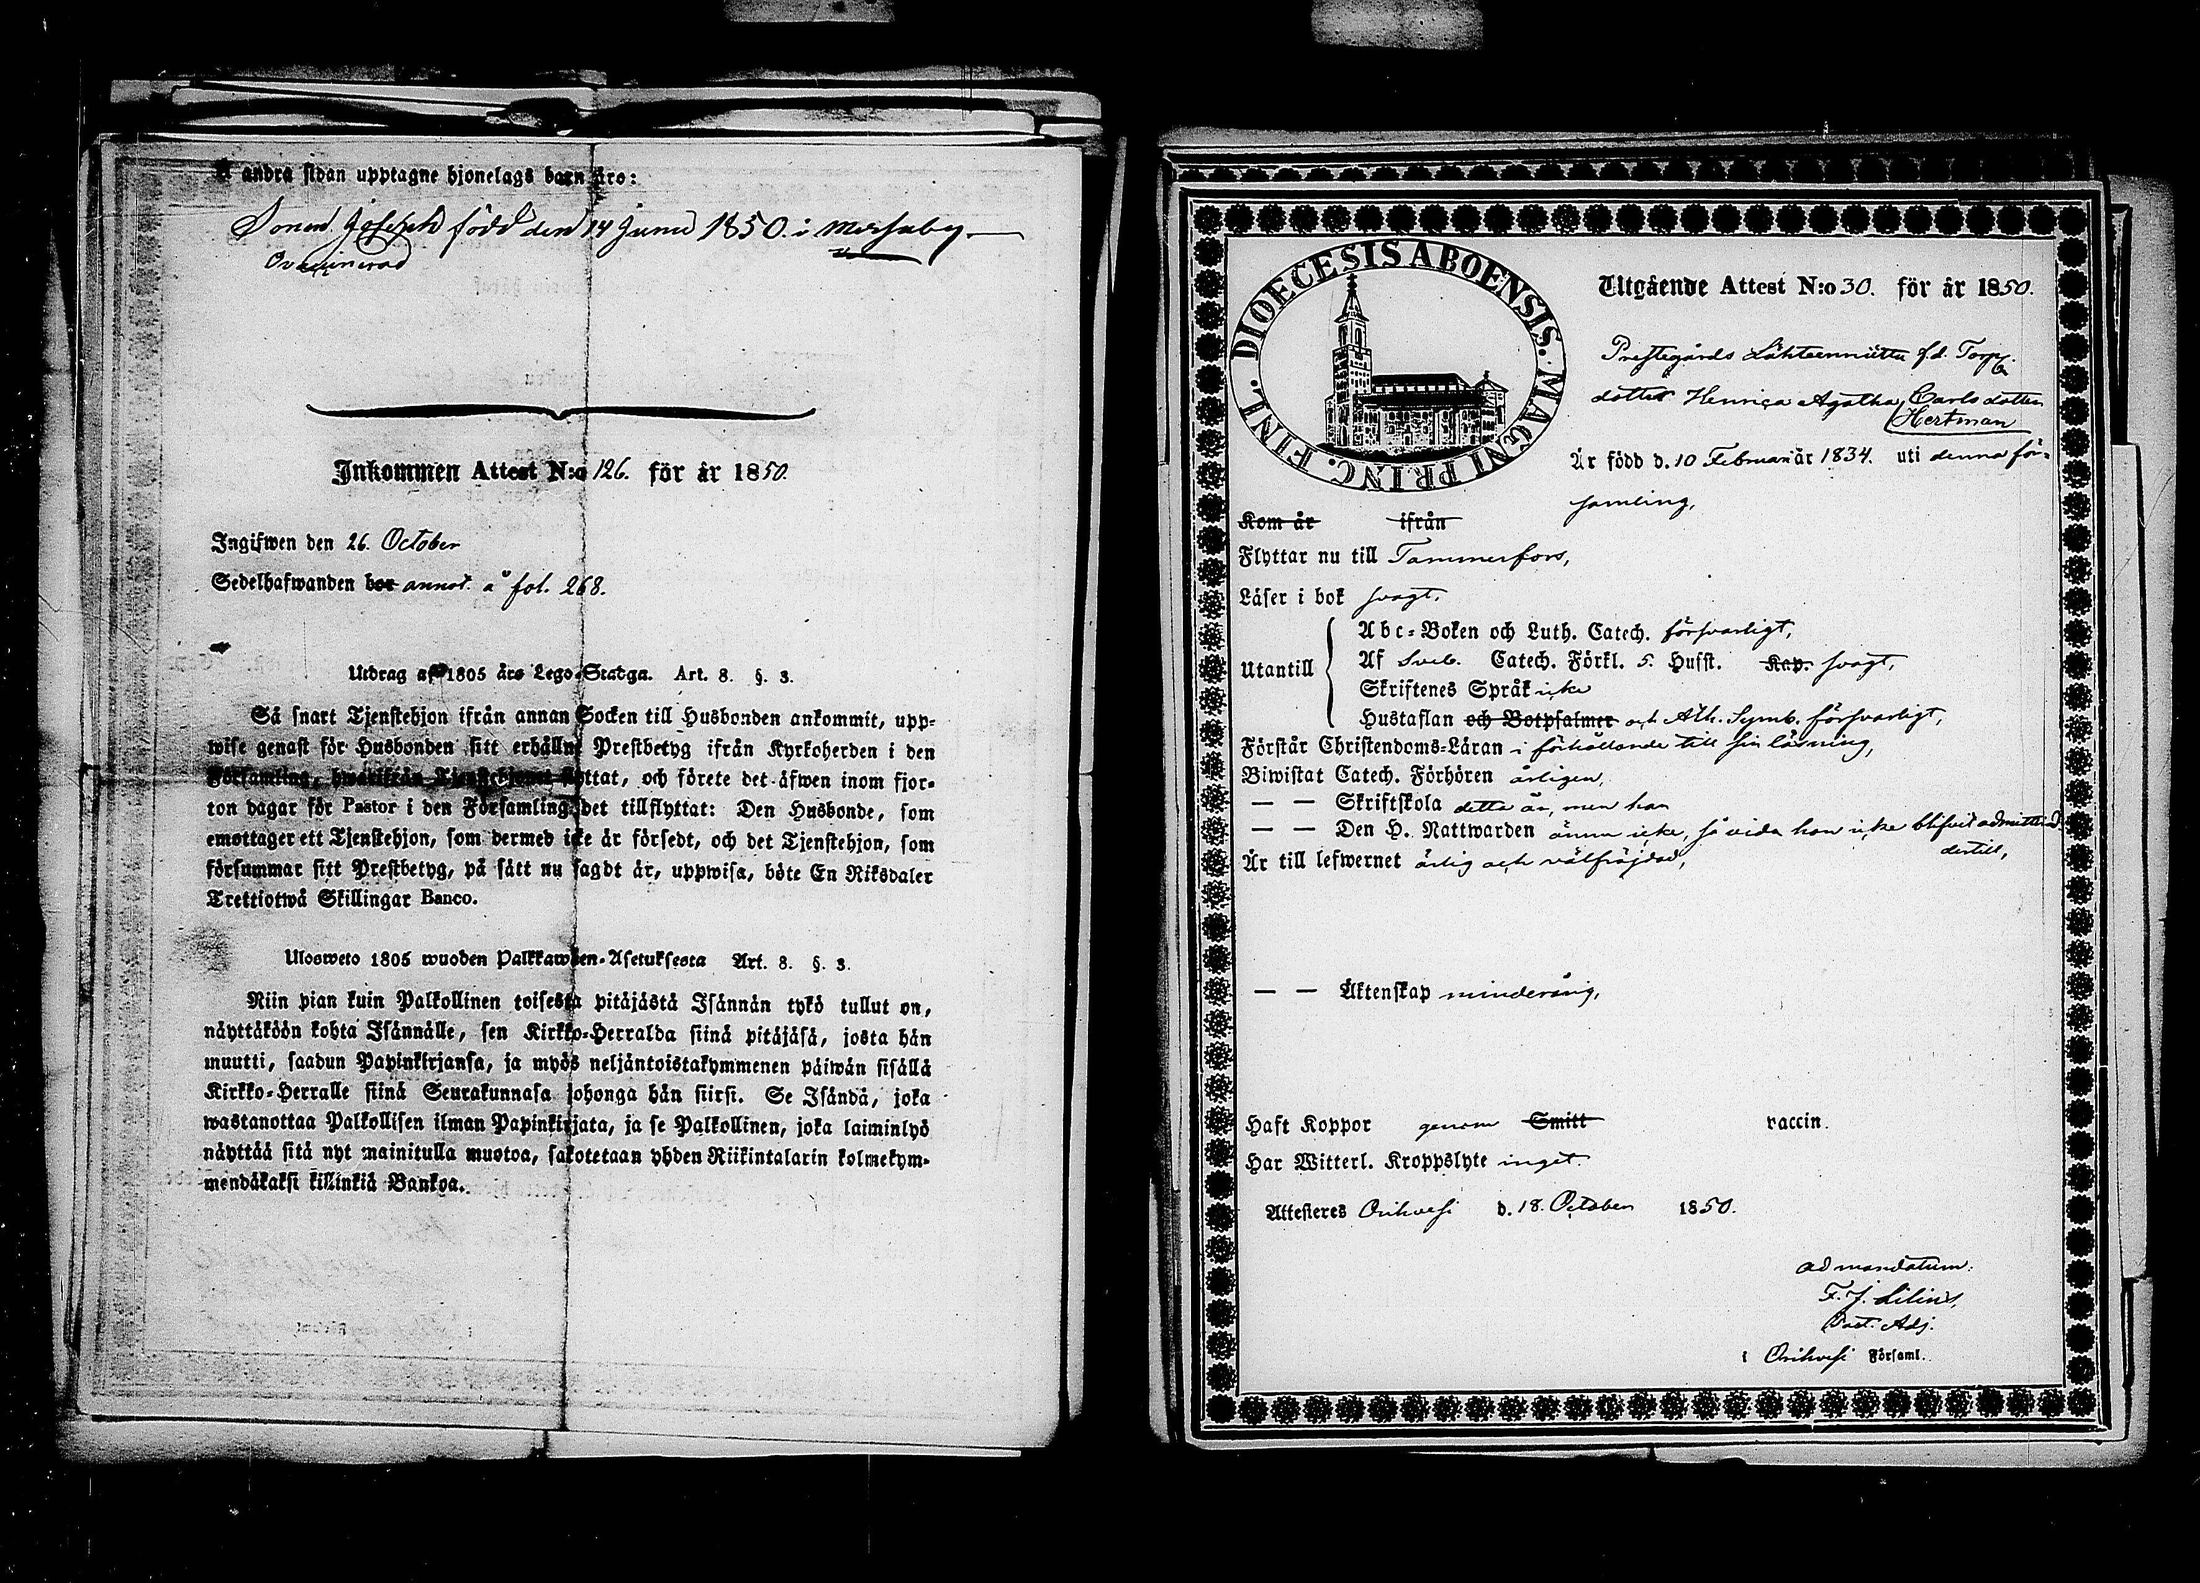 Å andra sidan upptagne hjonelags barn äro:
Sonen Joseph född den 14 Junii 1850. i
Ovaccinerad
Inkommen Attest N:o 126. för år 1850.
Ingifwen den 26. October
Sedelhafwanden bor annot. å fol. 268.
Utdrag af 1805 års Lego-Stadga. Art. 8. §. 3.
Så snart Tjenstehjon ifrån annan Socken till Husbonden ankommit, upp-
wise genast för Husbonden sitt erhållne Prestbetyg ifrån Kyrkoherden i den
Församling, hwarifrån Tjenstehjonet flyttat, och förete det äfwen inom fjor-
ton dagar för Pastor i den Församling det tillflyttat: Den Husbonde, som
emottager ett Tjenstehjon, som dermed icke är försedt, och det Tjenstehjon, som
försummar sitt Prestbetyg, på sätt nu sagdt är, uppwisa, böte En Riksdaler
Trettiotwå Skillingar Banco.
Ulosweto 1805 wuoden Palkkawäen-Asetuksesta Art. 8. §. 3.
Niin pian kuin Palkollinen toisesta pitäjästä Isännän tykö tullut on,
näyttäköön kohta Isännälle, sen Kirkko-Herralda siinä pitäjäsä, josta hän
muutti, saadun Papinkirjansa, ja myös neljäntoistakymmenen päiwän sisällä
Kirkko-Herralle siinä Seurakunnasa johonga hän siirsi. Se Isändä, joka
wastanottaa Palkollisen ilman Papinkirjata, ja se Palkollinen, joka laiminlyö
näyttää sitä nyt mainitulla muotoa, sakotetaan yhden Riikintalarin kolmekym-
mendäkaksi killinkiä Bankoa.
DIOECESIS ABOENSIS. MAGNI PRINC. FINL.
Utgående Attest N:o 30. för år 1850.
Prestegårds f.d. Torp.
dotter Henrica Agatha Carlsdotter
Hertman
Är född d. 10 Februari år 1834. uti denna för-
samling,
Kom år ifrån
Flyttar nu till Tammerfors,
Läser i bok svagt,
Utantill
Abc-Boken och Luth. Catech. försvarligt,
Af Sveb. Catech. Förkl. 5. Hufst. Kap. svagt,
Skriftenes Språk icke
Hustaflan och Botpsalmer och Ath. Symb. försvarligt,
Förstår Christendoms-Läran i förhållande till sin läsning,
Biwistat Catech. Förhören årligen,
— — Skriftskola detta år, men har
— — Den H. Nattwarden ännu icke, så vida hon icke blifvit admitterad
dertill,
Är till lefwernet ärlig och välfrejdad,
— — Äktenskap minderårig,
Haft Koppor genom Smitt vaccin.
Har Witterl. Kroppslyte inget.
Attesteres Orihvesi d. 18. October 1850.
ad mandatum:
F. J. Lilius,
Past. Adj.
i Orihvesi Församl.